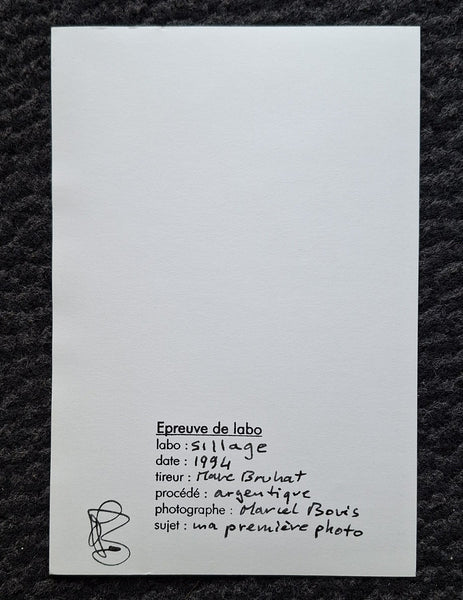 Epreuve de labo
labo : sillage
date : 1994
tireur : Marc Bruhat
procédé : argentique
photographe : Marcel Bovis
sujet : ma première photo